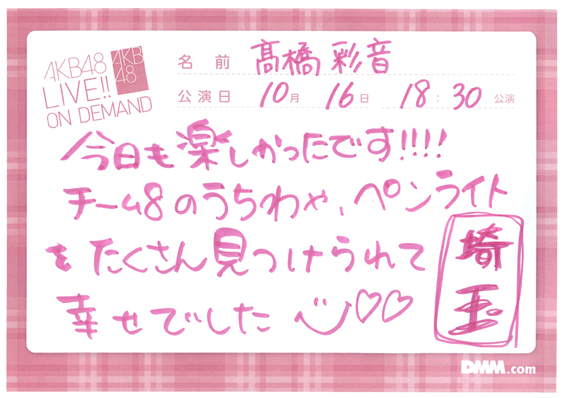 AKB48
LIVE!!
ON DEMAND
AKB
48
名前 髙橋彩音
公演日 10月 16日 18:30 公演
今日も楽しかったです!!!!
チーム8のうちわや、ペンライト
をたくさん見つけられて
幸せでした
埼玉
DMM.com